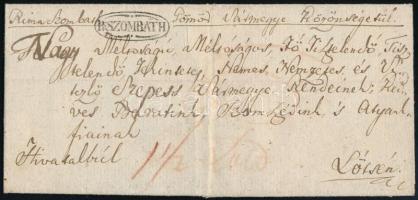 Rima Szombat R:SZOMBATH Gömör Vármegye Közönségétül.
Nagy Méltóságú, Méltóságos, Fő Tisztelendő, Tisz
telendő, Tekintetes, Nemes, Nemzetes, és Vi
tézlő Szepess Vármegye Rendeinek, Ked
ves Barátink, Szomszédink, s Atyank
fiainak
Hivatalból
Lőtsén.